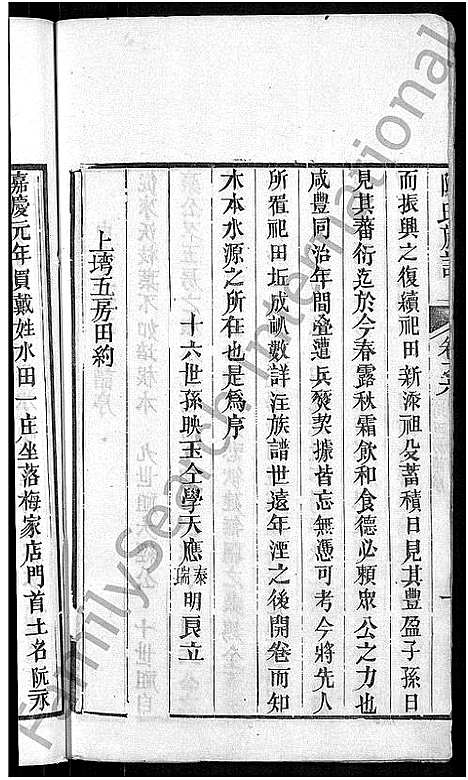 而振興之復續祀田新添祖殳蓄積日見其豐盈子孫日
見其蕃衍迄於今春露秋霜飲和食德必頼眾公之力也
咸豐同治年間叠遭兵燹契據皆忘無憑可考今將先人
所置祀田坵成畝數詳注族譜世遠年湮之後開卷而知
木本水源之所在也是爲序
十六世孫映玉仝學天應泰瑞明良立
上塆五房田約
嘉慶元年買戴姓水田一庄坐落梅家店門首土名阮
氏族譜
FamilySearch International